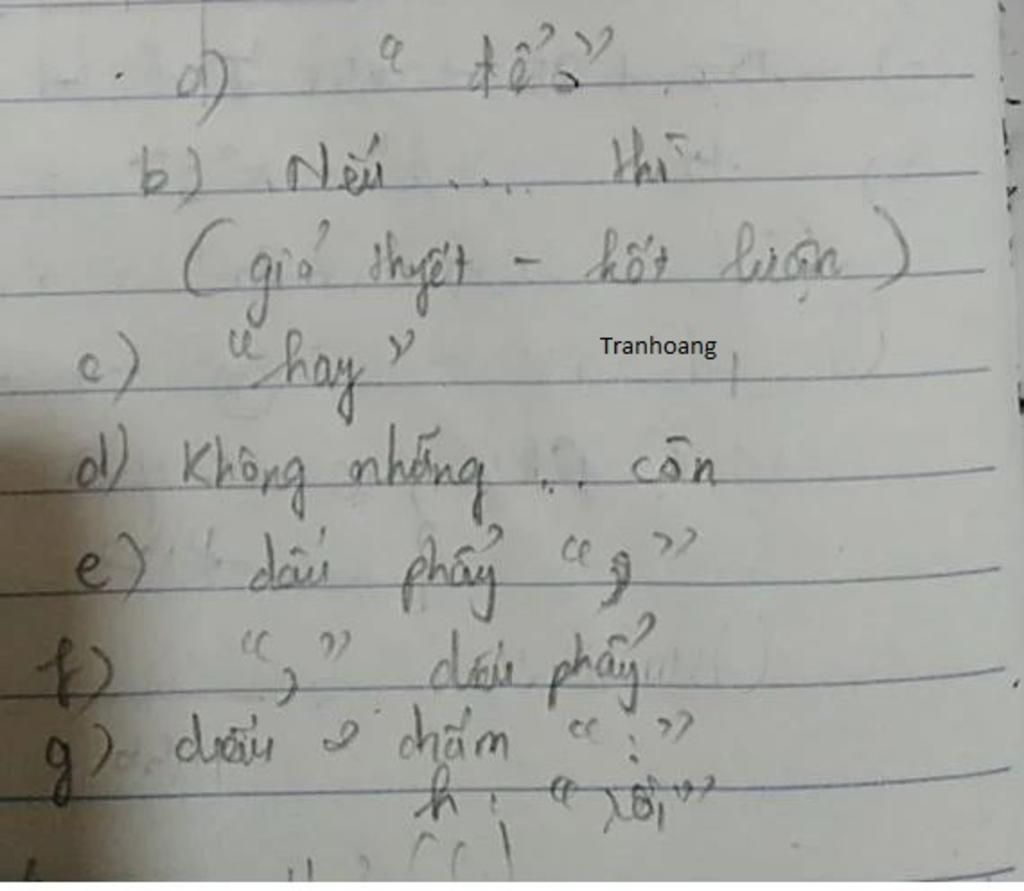 a) "để"
b) Nếu .... thì
(giả thyết - kết luận)
c) "hay"
Tranhoang
d) Không những ... còn
e) dấu phẩy ","
f) "," dấu phẩy
g) dấu 2 chấm ":"
h: "rồi"